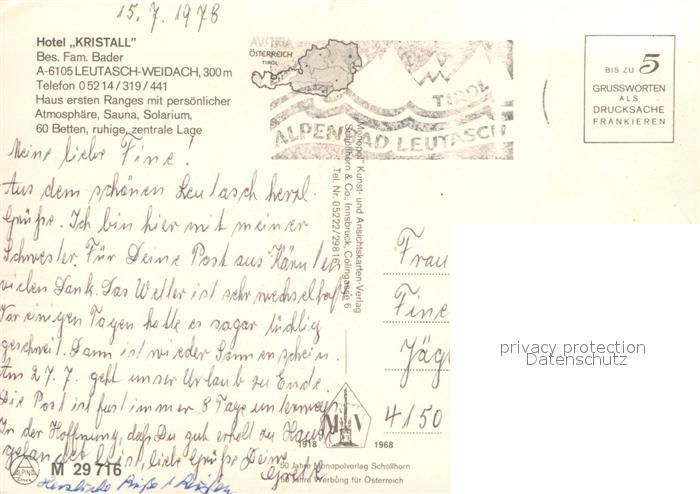 15.7.1978
Hotel „KRISTALL"
Bes. Fam. Bader
A-6105 LEUTASCH-WEIDACH, 300 m
Telefon 0 52 14 / 319 / 441
Haus ersten Ranges mit persönlicher
Atmosphäre, Sauna, Solarium,
60 Betten, ruhige, zentrale Lage
AUSTRIA
ÖSTERREICH
TIROL
TIROL
ALPENBAD LEUTASCH
BIS ZU 5
GRUSSWORTEN
ALS
DRUCKSACHE
FRANKIEREN
Meine liebe Fine!
Aus dem schönen Leutasch herzl.
Grüße. Ich bin hier mit meiner
Schwester. Für Deine Post aus Kärnten
vielen Dank. Das Wetter ist sehr wechselhaft
Vor einigen Tagen hatte es sogar tüchtig
geschneit. Dann ist wieder Sonnenschein.
Am 27.7. geht unser Urlaub zu Ende.
Die Post ist fast immer 8 Tage unterwegs
In der Hoffnung, daß Du gut erholt zu Hause
gelandet bist, liebe Grüße Deine
Herzliche Grüße
„Monopol" Kunst- und Ansichtskarten-Verlag
Schöllhorn & Co., Innsbruck, Colingasse 6
Tel. Nr. 05222/29816
Frau
Fine
Jäg
4150
privacy protection
Datenschutz
M V
1918 1968
50 Jahre Monopolverlag Schöllhorn
50 Jahre Werbung für Österreich
M 29 716